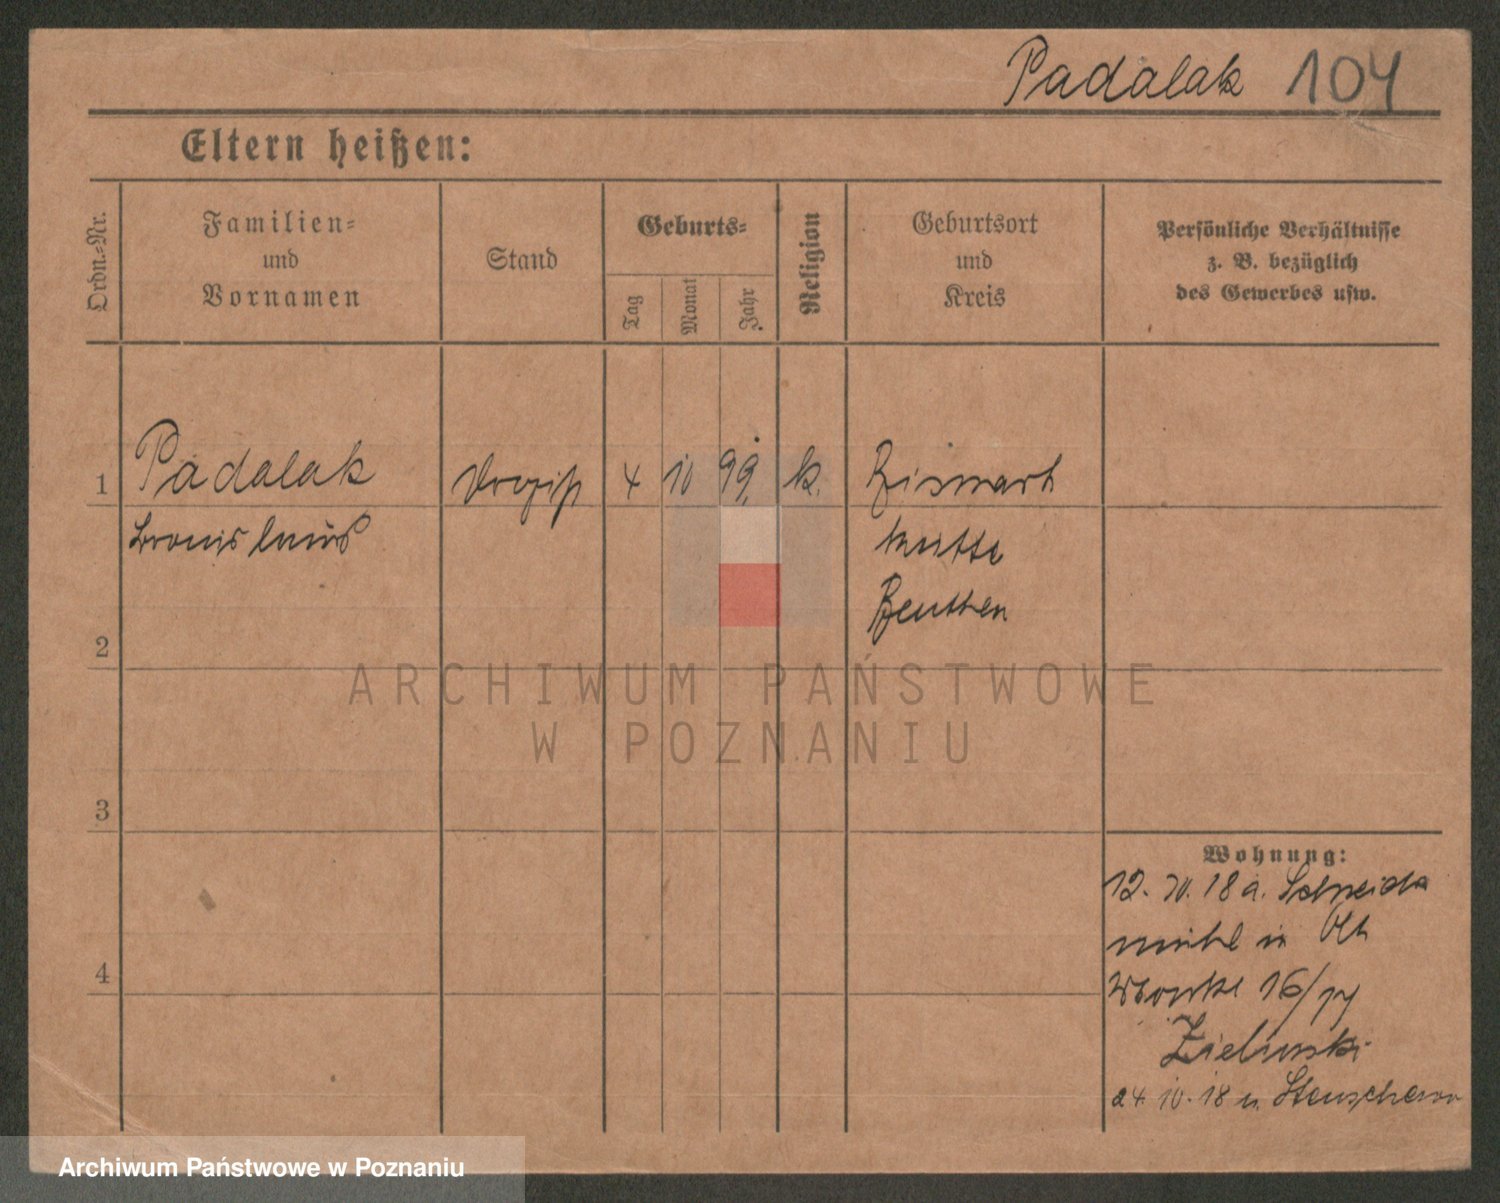 Padalak 104
Eltern heißen:
Ordn.=Nr.
Familien=
und
Vornamen
Stand
Geburts=
Tag
Monat
Jahr
Religion
Geburtsort
und
Kreis
Persönliche Verhältnisse
z. B. bezüglich
des Gewerbes usw.
1 Padalak Drogist 4 10 99. k. Bismark
Bronislaus hütte
Beuthen
2
3
4
Wohnung:
12. 10. 18 a. Schneide
mühl in
16/
Zielinski
24. 10. 18 n.
ARCHIWUM PAŃSTWOWE
W POZNANIU
Archiwum Państwowe w Poznaniu